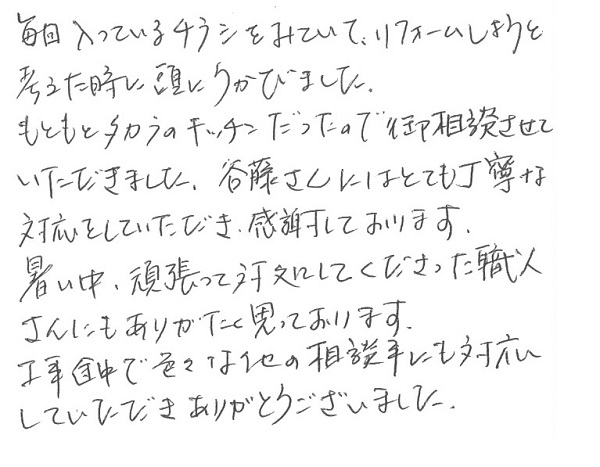 毎回入っているチラシをみていて、リフォームしようと
考えた時に頭にうかびました。
もともとタカラのキッチンだったので御相談させて
いただきました。谷藤さんにはとても丁寧な
対応をしていただき、感謝しております。
暑い中、頑張って対応してくださった職人
さんにもありがたく思っております。
工事途中で色々な他の相談事にも対応
していただきありがとうございました。